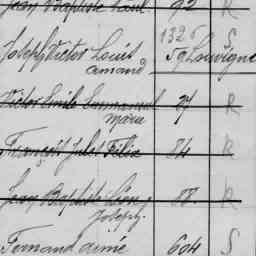 Jean Baptiste Paul 92 R
132 S
Joseph Victor Louis 59 Louvigné
Amand
Victor Emile Emmanuel 27 R
Marie
François Jules Félix 84 R
Jean Baptiste Léon 88 R
Joseph
Fernand Aimé 604 S